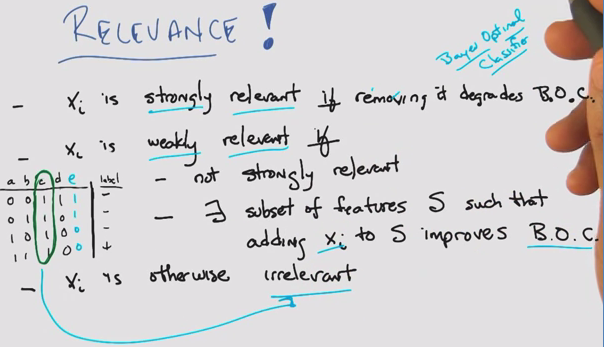 RELEVANCE!
Bayes Optimal
Classifier
- Xi is strongly relevant if removing it degrades B.O.C.
- Xi is weakly relevant if
- not strongly relevant
- ∃ subset of features S such that
adding Xi to S improves B.O.C.
a b c d e label
0 0 1 1 1 -
0 1 1 0 1 -
1 0 1 0 0 -
1 1 1 0 0 +
- Xi is otherwise irrelevant